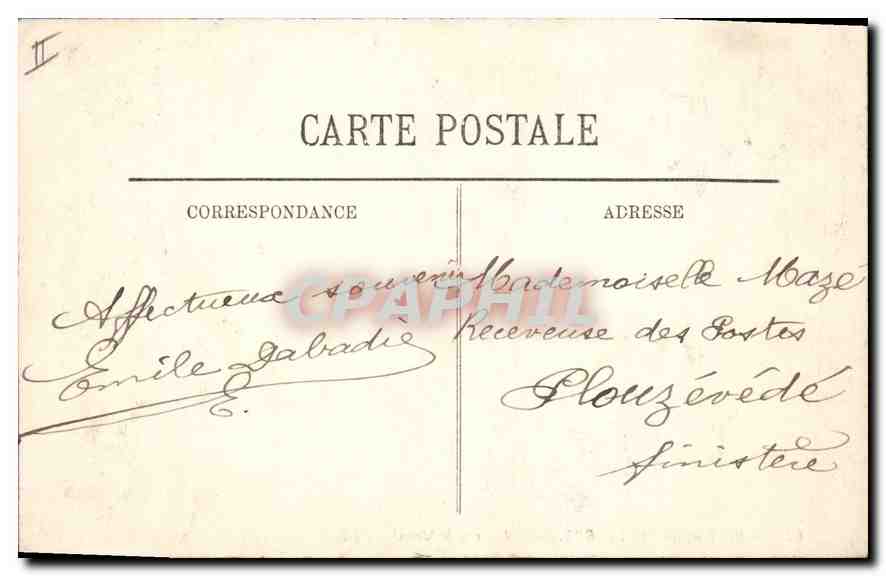 II
CARTE POSTALE
CORRESPONDANCE
Affectueux souvenir
Emile Dabadie
E.
ADRESSE
Mademoiselle Mazé
Receveuse des Postes
Plouzévédé
finistère
CPAPHIL